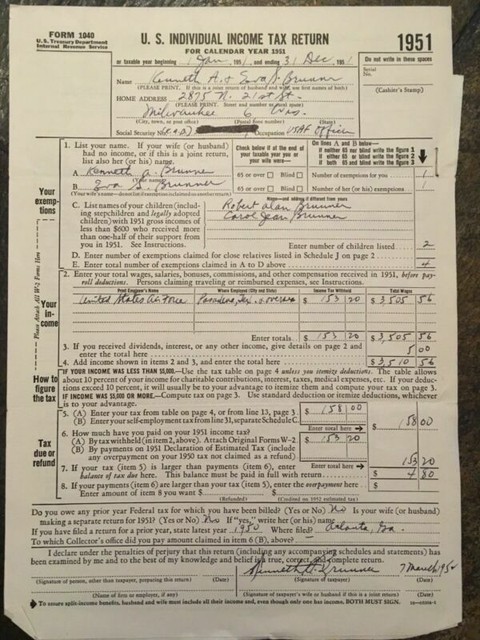 FORM 1040
U. S. Treasury Department
Internal Revenue Service
U. S. INDIVIDUAL INCOME TAX RETURN
FOR CALENDAR YEAR 1951
or taxable year beginning 1 Jan, 1951, and ending 31 Dec, 1951
1951
Do not write in these spaces
Serial No.
(Cashier's Stamp)
Name Kenneth A. & Eva S. Brunner
(PLEASE PRINT. If this is a joint return of husband and wife, use first names of both)
HOME ADDRESS 2875 N. 21st St.
(PLEASE PRINT. Street and number or rural route)
Milwaukee 6 Wis.
(City, town, or post office) (Postal zone number) (State)
Social Security No. Occupation USAF Officer
Your exemptions
1. List your name. If your wife (or husband) had no income, or if this is a joint return, list also her (or his) name.
Check below if at the end of your taxable year you or your wife were—
On lines A and B below—
If neither 65 nor blind write the figure 1
If either 65 or blind write the figure 2
If both 65 and blind write the figure 3
A. Kenneth A. Brunner 65 or over Blind Number of exemptions for you 1
B. Eva S. Brunner 65 or over Blind Number of her (or his) exemptions 1
C. List names of your children (including stepchildren and legally adopted children) with 1951 gross incomes of less than $600 who received more than one-half of their support from you in 1951. See Instructions.
Robert Alan Brunner
Carol Jean Brunner
Enter number of children listed 2
D. Enter number of exemptions claimed for close relatives listed in Schedule J on page 2
E. Enter total number of exemptions claimed in A to D above 4
Please Attach All W-2 Forms Here
Your income
2. Enter your total wages, salaries, bonuses, commissions, and other compensation received in 1951, before payroll deductions. Persons claiming traveling or reimbursed expenses, see Instructions.
Print Employer's Name Where Employed (City and State) Income Tax Withheld Total Wages
United States Air Force $ 153 20 $ 3,505 56
Enter totals $ 153 20 $ 3,505 56
3. If you received dividends, interest, or any other income, give details on page 2 and enter the total here 5 00
4. Add income shown in items 2 and 3, and enter the total here $ 3,510 56
How to figure the tax
IF YOUR INCOME WAS LESS THAN $5,000.—Use the tax table on page 4 unless you itemize deductions. The table allows about 10 percent of your income for charitable contributions, interest, taxes, medical expenses, etc. If your deductions exceed 10 percent, it will usually be to your advantage to itemize them and compute your tax on page 3.
IF INCOME WAS $5,000 OR MORE.—Compute tax on page 3. Use standard deduction or itemize deductions, whichever is to your advantage.
Tax due or refund
5. (A) Enter your tax from table on page 4, or from line 13, page 3 $ 158 00
(B) Enter your self-employment tax from line 31, separate Schedule C
Enter total here $ 158 00
6. How much have you paid on your 1951 income tax?
(A) By tax withheld (in item 2, above). Attach Original Forms W-2 $ 153 20
(B) By payments on 1951 Declaration of Estimated Tax (include any overpayment on your 1950 tax not claimed as a refund)
Enter total here 153 20
7. If your tax (item 5) is larger than payments (item 6), enter balance of tax due here. This balance must be paid in full with return $ 4 80
8. If your payments (item 6) are larger than your tax (item 5), enter the overpayment here $
Enter amount of item 8 you want $ (Refunded) $ (Credited on 1952 estimated tax)
Do you owe any prior Federal tax for which you have been billed? (Yes or No) No Is your wife (or husband) making a separate return for 1951? (Yes or No) No If "yes," write her (or his) name
If you have filed a return for a prior year, state latest year 1950 Where filed? Atlanta, Ga.
To which Collector's office did you pay amount claimed in item 6 (B), above?
I declare under the penalties of perjury that this return (including any accompanying schedules and statements) has been examined by me and to the best of my knowledge and belief is true, correct, and complete return.
Kenneth A. Brunner 7 March 1952
(Signature of person, other than taxpayer, preparing this return) (Date) (Signature of taxpayer) (Date)
(Name of firm or employer, if any) (Signature of taxpayer's wife or husband if this is a joint return) (Date)
To assure split-income benefits, husband and wife must include all their income and, even though only one has income, BOTH MUST SIGN.